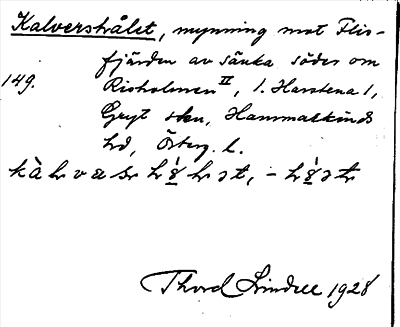 Kalvershålet, mynning mot Flis-
fjärden av sänka söder om
149. Risholmen II, l. Harstena 1,
Gryt skn, Hammarkinds
hd, Österg. l.
Thord Lindell 1928